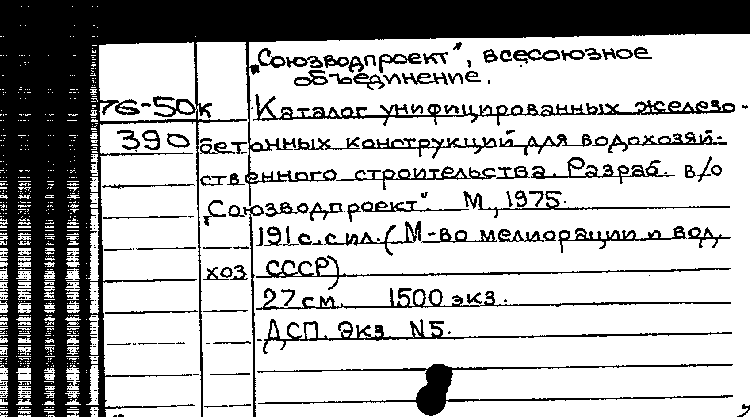 „Союзводпроект", всесоюзное
объединение.
76-50к Каталог унифицированных железо-
390 бетонных конструкций для водохозяй-
ственного строительства. Разраб. в/о
„Союзводпроект". М., 1975.
191 с. с ил. (М-во мелиорации и вод.
хоз. СССР)
27 см. 1500 экз.
ДСП. Экз. N5.